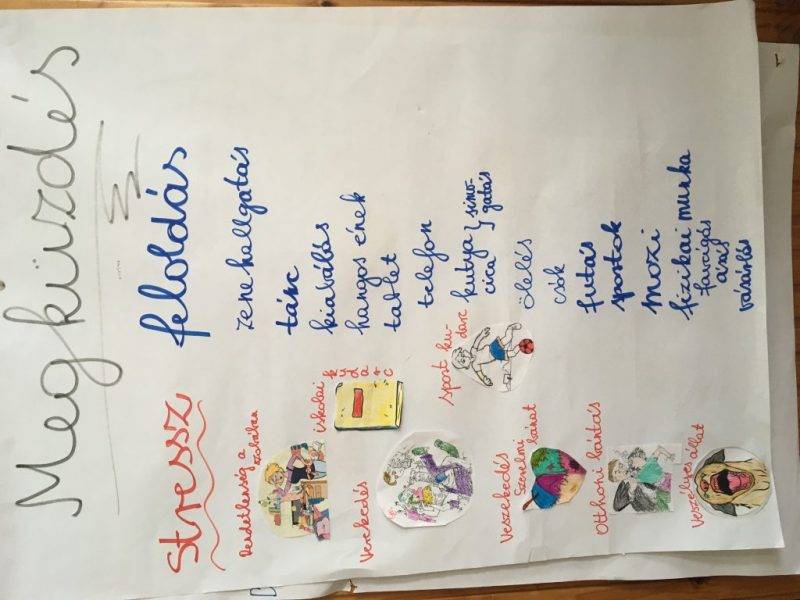 Megküzdés
Stressz
Rendetlenség a
szobában
iskolai
kudarc
Verekedés
sport ku-
darc
Veszekedés
Szerelmi
bánat
Otthoni bántás
Veszélyes állat
feloldás
zenehallgatás
tánc
kiabálás
hangos ének
tablet
telefon
kutya } simo-
cica } gatás
ölelés
csók
futás
sportok
mozi
fizikai munka
favágás
ásás
vásárlás